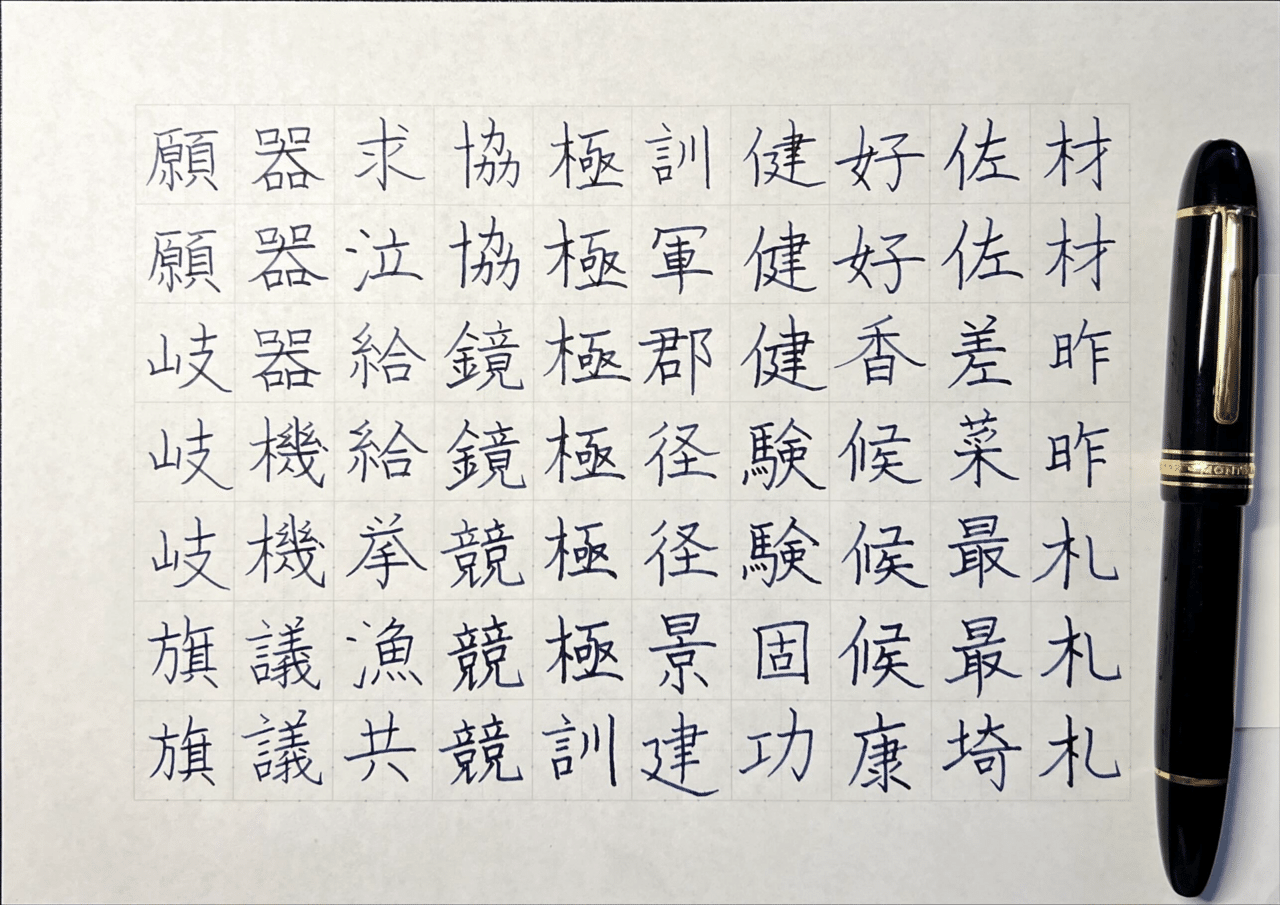 願願岐岐岐旗旗
器器器機機議議
求泣給給挙漁共
協協鏡鏡競競競
極極極極極極訓
訓軍郡径径景建
健健健験験固功
好好香候候候康
佐佐差菜最最埼
材材昨昨札札札